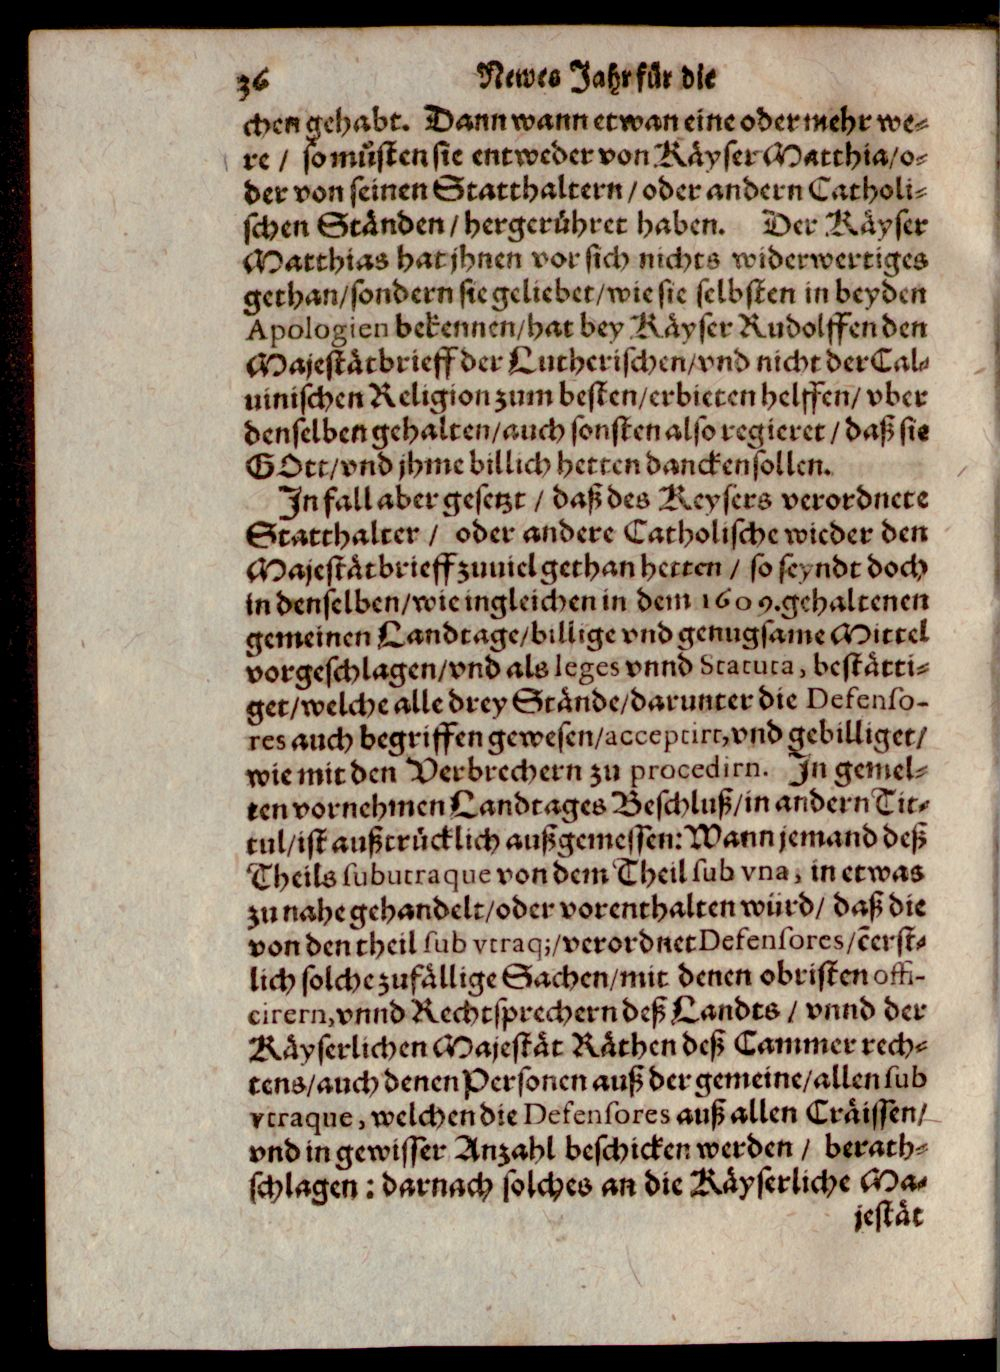 36 Newes Jahr für die
chen gehabt. Dann wann etwan eine oder mehr we-
re / so müsten sie entweder von Käyser Matthia/o-
der von seinen Statthaltern / oder andern Catholi-
schen Ständen / hergerühret haben. Der Käyser
Matthias hat jhnen vor sich nichts widerwertiges
gethan/sondern sie geliebet/wie sie selbsten in beyden
Apologien bekennen/hat bey Käyser Rudolffen den
Majestätbrieff der Lutherischen/vnd nicht der Cal-
uinischen Religion zum besten/erbieten helffen/ vber
denselben gehalten/auch sonsten also regieret / daß sie
GOtt/vnd jhme billich hetten dancken sollen.
In fall aber gesetzt / daß des Keysers verordnete
Statthalter / oder andere Catholische wieder den
Majestätbrieff zuuiel gethan hetten / so seyndt doch
in denselben/wie ingleichen in dem 1609.gehaltenen
gemeinen Landtage/billige vnd genugsame Mittel
vorgeschlagen/vnd als leges vnnd Statuta, bestätti-
get/welche alle drey Stände/darunter die Defenso-
res auch begriffen gewesen/acceptirt,vnd gebilliget/
wie mit den Verbrechern zu procedirn. In gemel-
ten vornehmen Landtages Beschluß/in andern Tit-
tul/ist außtrücklich außgemessen: Wann jemand deß
Theils subutraque von dem Theil sub vna, in etwas
zu nahe gehandelt/oder vorenthalten würd/ daß die
von den theil sub vtraq;/verordnet Defensores/c̄erst-
lich solche zufällige Sachen/mit denen obristen offi-
cirern,vnnd Rechtsprechern deß Landts / vnnd der
Käyserlichen Majestät Räthen deß Cammer rech-
tens/auch denen Personen auß der gemeine/allen sub
vtraque, welchen die Defensores auß allen Cräissen/
vnd in gewisser Anzahl beschicken werden / berath-
schlagen : darnach solches an die Käyserliche Ma-
jestät